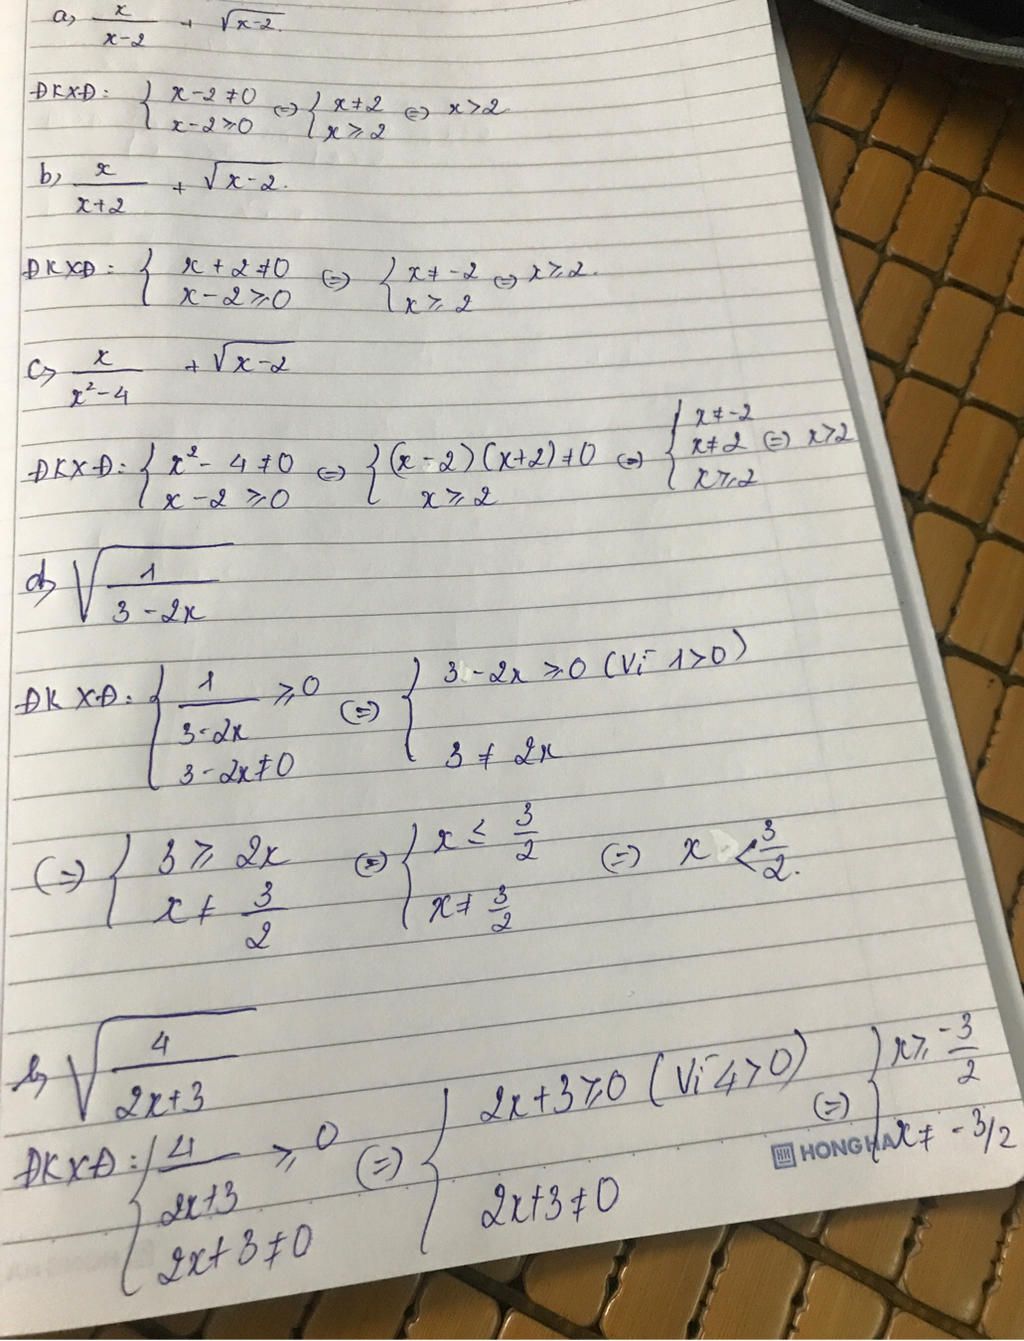 a, x/(x-2) + √(x-2).
ĐKXĐ: { x-2≠0 ; x-2⩾0 (=) { x≠2 ; x⩾2 (=) x>2.
b, x/(x+2) + √(x-2).
ĐKXĐ: { x+2≠0 ; x-2⩾0 (=) { x≠-2 ; x⩾2 (=) x⩾2.
c, x/(x²-4) + √(x-2)
ĐKXĐ: { x²-4≠0 ; x-2⩾0 (=) { (x-2)(x+2)≠0 ; x⩾2 (=) { x≠-2 ; x≠2 ; x⩾2 (=) x>2
d, √(1/(3-2x))
ĐKXĐ: { 1/(3-2x) ⩾0 ; 3-2x≠0 (=) { 3-2x⩾0 (Vì 1>0) ; 3≠2x
(=) { 3⩾2x ; x≠3/2 (=) { x≤3/2 ; x≠3/2 (=) x<3/2.
√(4/(2x+3))
ĐKXĐ: { 4/(2x+3) ⩾0 ; 2x+3≠0 (=) { 2x+3⩾0 (Vì 4>0) ; 2x+3≠0 (=) { x⩾-3/2 ; x≠-3/2
HONG HA